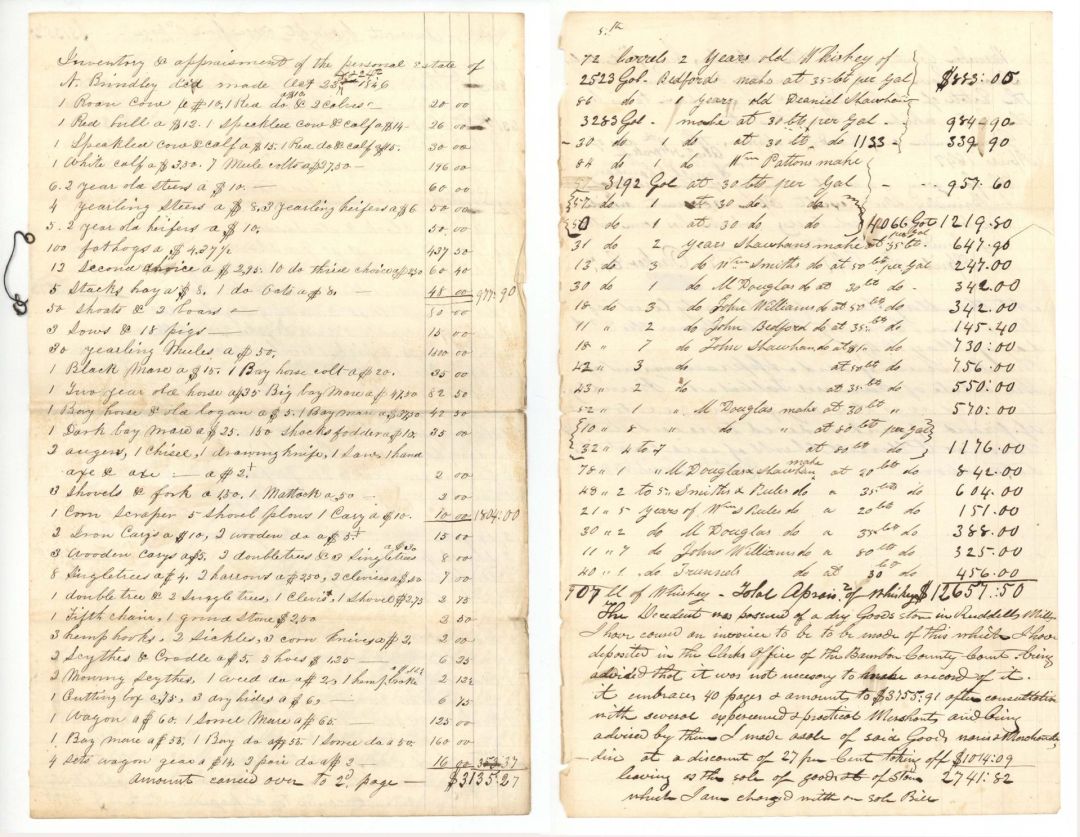 Inventory & appraisment of the personal Estate of
N. Brindley dec'd made Oct 23rd & 24th 1846
1 Roan cow a $10, 1 Red do a $10 & 2 calves 20 00
1 Red bull a $12. 1 Speckled cow & calf a $14 26 00
1 Speckled cow & calf a $15. 1 Red do & calf $15. 30 00
1 White calf a $3.50. 7 Mule colts a $27,50 196 00
6. 2 year old steers a $10. 60 00
4 yearling steers a $8, 3 yearling heifers a $6 50 00
5. 2 year old heifers a $10, 50, 00
100 fat hogs a $4.37½ 437 50
12 second choice a $2,95. 10 do third choice a 60 40
5 Stacks hay a $8. 1 do Oats a $8. 48 00 977.90
50 Shoats & 2 boars 50 00
3 Sows & 18 pigs 15 00
30 yearling Mules a $50, 00
1 Black Mare a $15. 1 Bay horse colt a $20. 35 00
1 Two year old horse a $35 Big bay Mare a $47,50 82 50
1 Bay horse & old logan a $5. 1 Bay mare a $37,50 42 50
1 Dark bay mare a $25. 150 shocks fodder a $10. 35 00
2 augers, 1 chisel, 1 drawing knife, 1 Saw, 1 hand
axe & axe a $2. 2 00
3 Shovels & fork a 1,50. 1 Mattock a ,50 2 00
1 Corn Scraper 5 Shovel plows 1 Cary a $10. 10 00 1804:00
2 Iron Carys a $10, 2 wooden do a $5. 15 00
3 Wooden Carys a $5. 2 doubletrees & 3 Singletrees a $3 8 00
8 Singletrees a $4. 2 harrows a $2.50, 2 clevises a $,50 7 00
1 double tree & 2 Singletrees, 1 Clevis, 1 Shovel $2.75 2 75
1 Fifth chain, 1 grind Stone $2,50 2 50
3 hemp hooks, 2 Sickles, 3 corn knives a $2. 2 00
2 Scythes & Cradle a $5. 5 hoes $1.25 6 25
2 Mowing Scythes, 1 weed do a $2, 1 hemp brake 2 12½
1 Cutting box a ,75, 3 dry hides a $6, 6 75
1 Wagon a $60, 1 Sorrel Mare a $65 125 00
1 Bay mare a $55, 1 Bay do a $55. 1 Sorrel do a 50. 160 00
4 sets wagon gear a $14, 2 pair do a $2 16 00 353.37
amounts carried over to 2d page $3135.27
5.th
72 barrels 2 Years old Whiskey of
2523 Gal. Bedfords make at 35 cts per Gal $883:05
86 do 1 years old Deaniel Shawhan
3283 Gal. make at 30 cts per Gal. 984.90
30 do 1 do at 30 cts do 1133 339 90
84 do 1 do Wm Pattons make
3192 Gal at 30 cts per Gal 957.60
57 do 1 at 30 do do
50 do 1 at 30 do do 4066 Gal 1219.80
31 do 2 years Shawhans make at 35 cts per gal 647.90
13 do 3 do Wm Smiths do at 50 cts per gal 247.00
30 do 1 do M Douglas do at 30 cts do 342.00
18 do 3 do John Williams do at 50 cts do 342.00
11 " 2 do John Bedford do at 35 cts do 145.40
18 " 7 do John Shawhan do at $1 do 730:00
42 " 3 do at 50 cts do 756.00
43 " 2 do at 35 cts do 550:00
52 " 1 " M Douglas make at 30 cts " 570:00
10 " 8 " do " at 80 cts per gal
32 " 4 to 7 at 80 cts do 1176.00
78 " 1 " M Douglas & Shawhan make at 30 cts do 842.00
48 " 2 to 5 " Smiths & Rules do a 35 cts do 604.00
21 " 5 years of Wm Rules do a 20 cts do 151.00
30 " 2 do M Douglas do a 35 cts do 388.00
11 " 7 do Johns Williams do a 80 cts do 325.00
40 " 1 do Trunnels do at 30 cts do 456.00
907 bl of Whiskey - Total Aprais. of Whiskey $12657:50
The Decedent was possesed of a dry Goods store in Ruddells Mills
I have caused an invoice to be to be made of this which I have
deposited in the Clerks Office of the Bourbon County Court. being
advised that it was not necessary to make a record of it.
it embraces 40 pages & amount to $3755.91 after consultation
with several experienced & practical Merchants and being
advised by them I made a sale of said Goods wares & Merchandise
at a discount of 27 per Cent taken off $1014:09
leaving as the sale of goods of Store 2741:82
which I am charged with on sale Bill